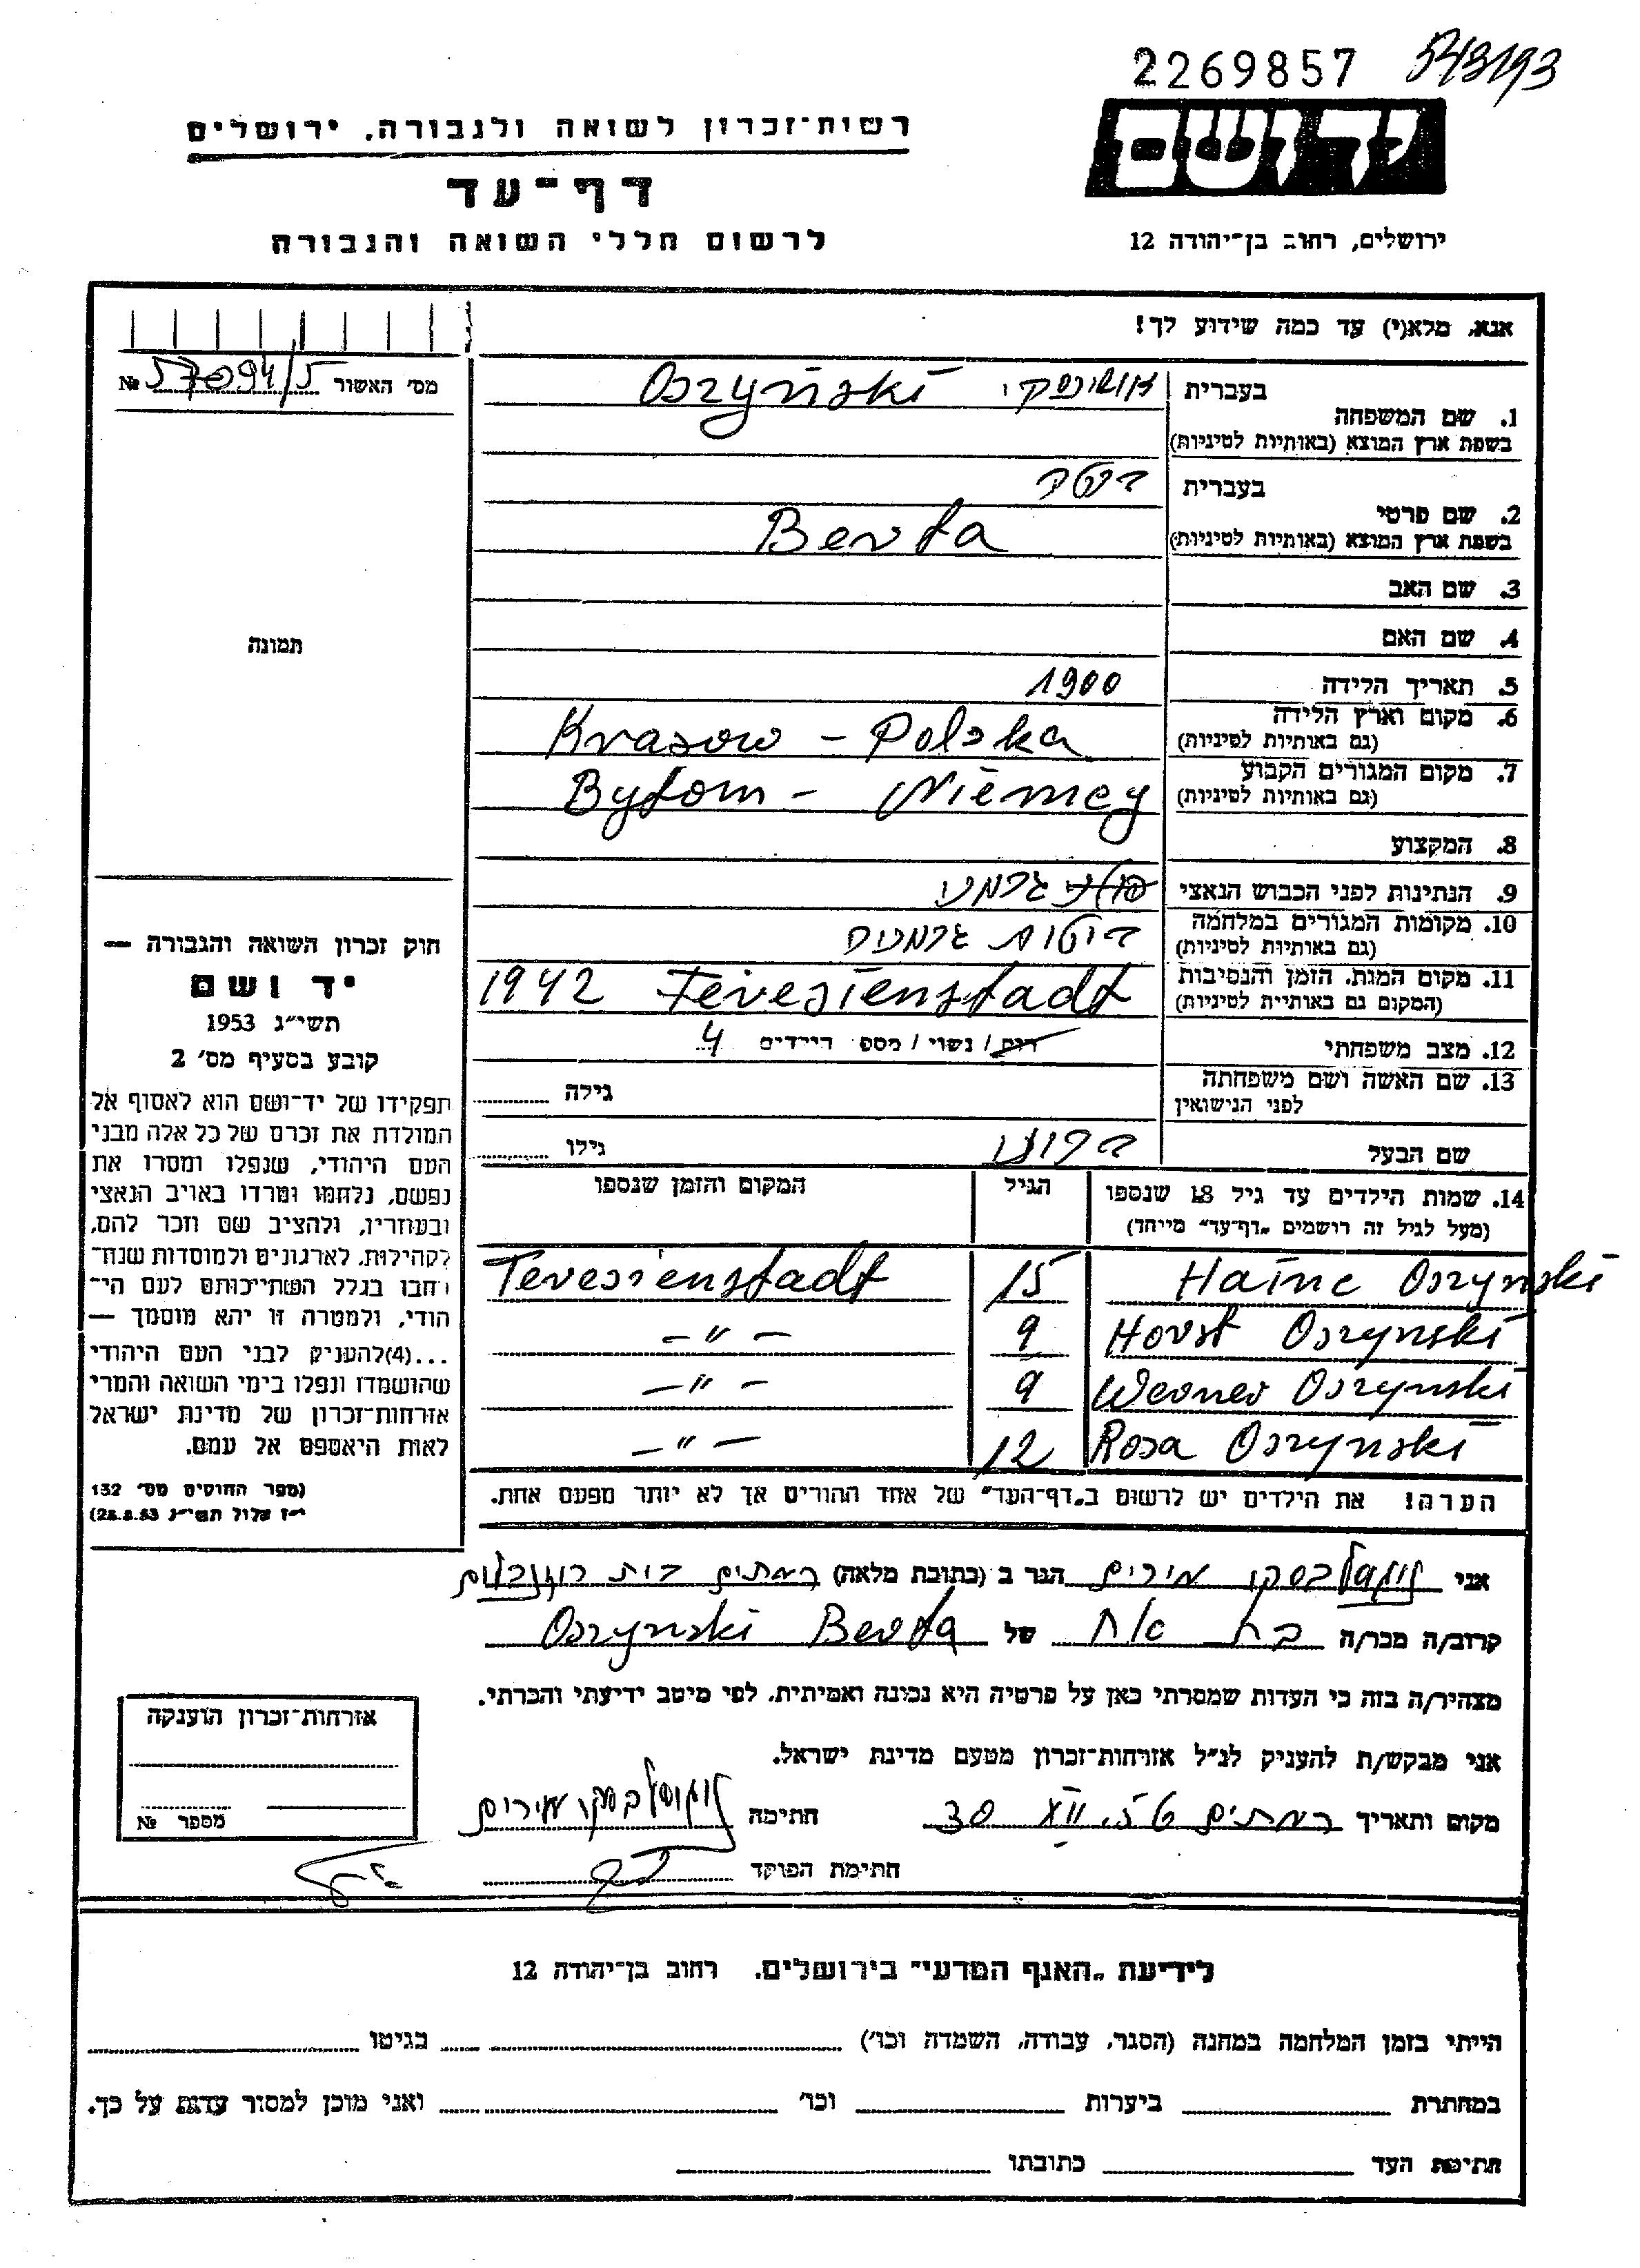 2269857
רשות־זכרון לשואה ולגבורה, ירושלים
יד ושם
דף־עד
לרשום חללי השואה והגבורה
ירושלים, רחוב בן־יהודה 12
אנא, מלא(י) עד כמה שידוע לך!
מס׳ האשור 57094/5 №
1. שם המשפחה בעברית אושינסקי Oszyński
בשפת ארץ המוצא (באותיות לטיניות)
2. שם פרטי בעברית ברטה
בשפת ארץ המוצא (באותיות לטיניות) Berta
3. שם האב
4. שם האם
תמונה
5. תאריך הלידה 1900
6. מקום וארץ הלידה (גם באותיות לטיניות) Krasow - Polska
7. מקום המגורים הקבוע (גם באותיות לטיניות) Bytom - Niemcy
8. המקצוע
9. הנתינות לפני הכבוש הנאצי גרמני
10. מקומות המגורים במלחמה (גם באותיות לטיניות) ביטום גרמניה
11. מקום המות, הזמן והנסיבות (המקום גם באותיות לטיניות) Teresienstadt 1942
12. מצב משפחתי רווק / נשוי / מספר הילדים 4
13. שם האשה ושם משפחתה לפני הנישואין גילה
שם הבעל גילו
14. שמות הילדים עד גיל 18 שנספו הגיל המקום והזמן שנספו
(מעל לגיל זה רושמים „דף־עד״ מיוחד)
Haine Oszynski 15 Teresienstadt
Horst Oszynski 9 — ״ —
Werner Oszynski 9 — ״ —
Rosa Oszynski 12 — ״ —
הערה! את הילדים יש לרשום ב„דף־העד״ של אחד ההורים אך לא יותר מפעם אחת.
חוק זכרון השואה והגבורה —
יד ושם
תשי״ג 1953
קובע בסעיף מס׳ 2
תפקידו של יד־ושם הוא לאסוף אל
המולדת את זכרם של כל אלה מבני
העם היהודי, שנפלו ומסרו את
נפשם, נלחמו ומרדו באויב הנאצי
ובעוזריו, ולהציב שם וזכר להם,
לקהילות, לארגונים ולמוסדות שנח־
רבו בגלל השתייכותם לעם הי־
הודי, ולמטרה זו יהא מוסמך —
...(4) להעניק לבני העם היהודי
שהושמדו ונפלו בימי השואה והמרי
אזרחות־זכרון של מדינת ישראל
לאות היאספם אל עמם.
(ספר החוקים מס׳ 132
י״ז אלול תשי״ג 28.8.53)
אני מירים הגר ב (כתובת מלאה) רמתים
קרוב/ה מכר/ה בת אח של Oszynski Berta
מצהיר/ה בזה כי העדות שמסרתי כאן על פרטיה היא נכונה ואמיתית, לפי מיטב ידיעתי והכרתי.
אני מבקש/ת להעניק לנ״ל אזרחות־זכרון מטעם מדינת ישראל.
מקום ותאריך רמתים 30 חתימה מירים
חתימת הפוקד
אזרחות־זכרון הוענקה
מספר №
לידיעת „האגף המדעי״ בירושלים, רחוב בן־יהודה 12
הייתי בזמן המלחמה במחנה (הסגר, עבודה, השמדה וכו׳) בגיטו
במחתרת ביערות וכו׳ ואני מוכן למסור עדות על כך.
חתימת העד כתובתו